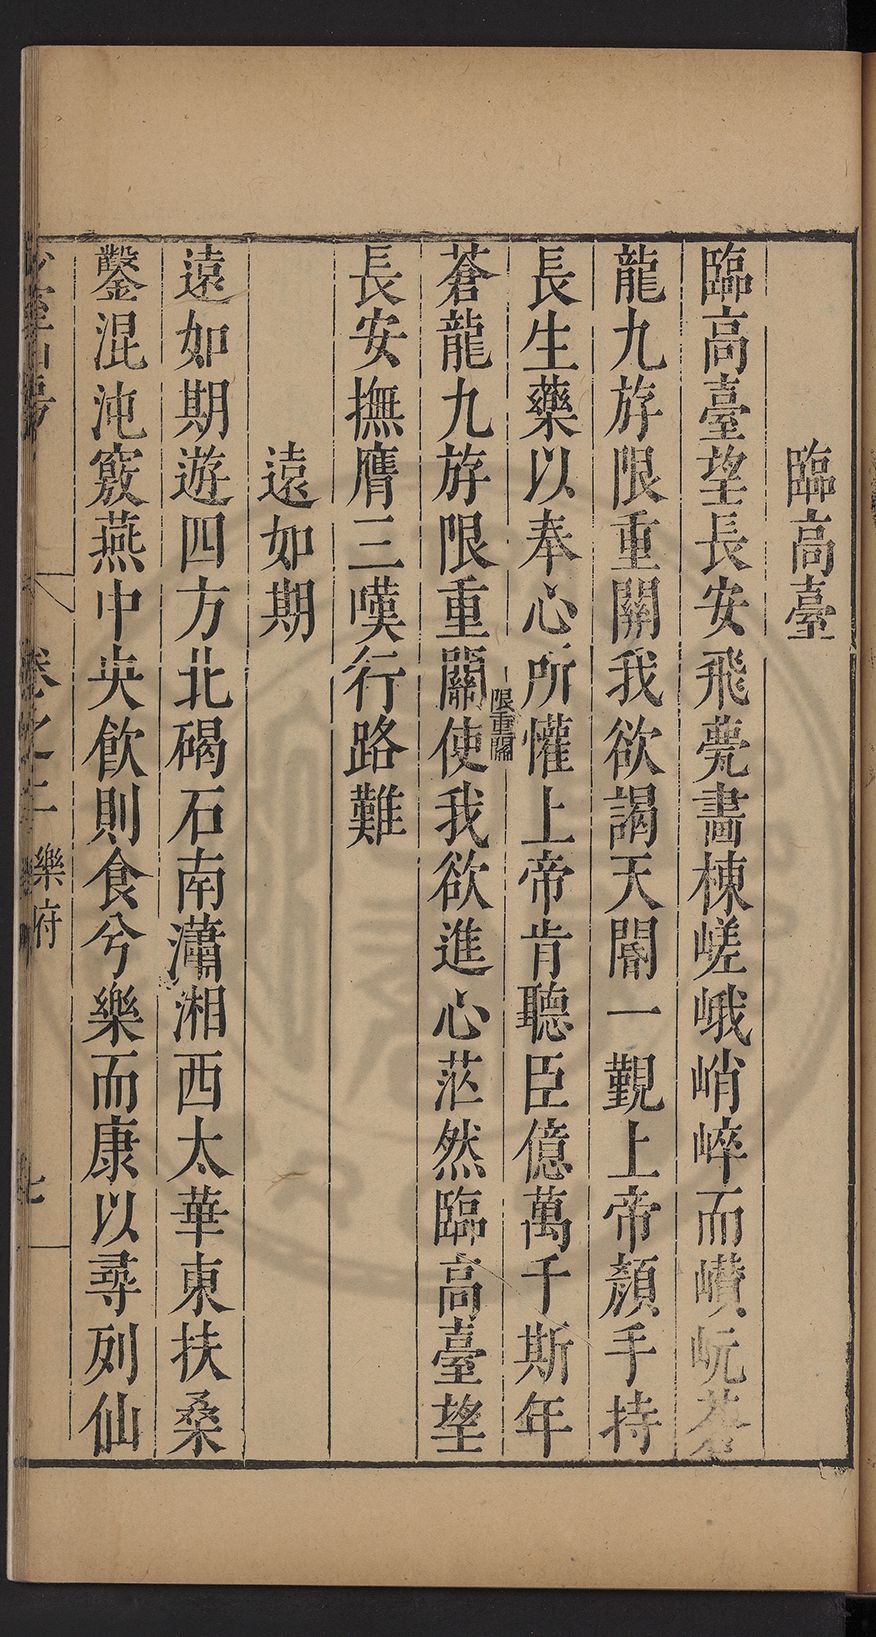 臨高臺
臨高臺望長安飛甍畵棟嵯峨峭崪而巑岏蒼
龍九斿限重關我欲謁天閽一覲上帝顏手持
長生藥以奉心所懽上帝肯聽臣億萬千斯年
蒼龍九斿限重關使我欲進心茫然臨高臺望
限重關
長安撫膺三嘆行路難
遠如期
遠如期遊四方北碣石南瀟湘西太華東扶桑
鑿混沌竅燕中央飮則食兮樂而康以尋列仙
山房
卷之二
樂府
七